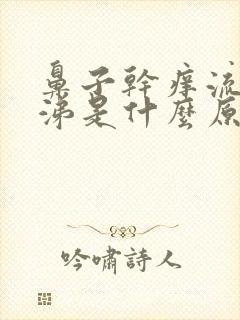 鼻子幹痒流
涕是什麼原
吟嘯詩人